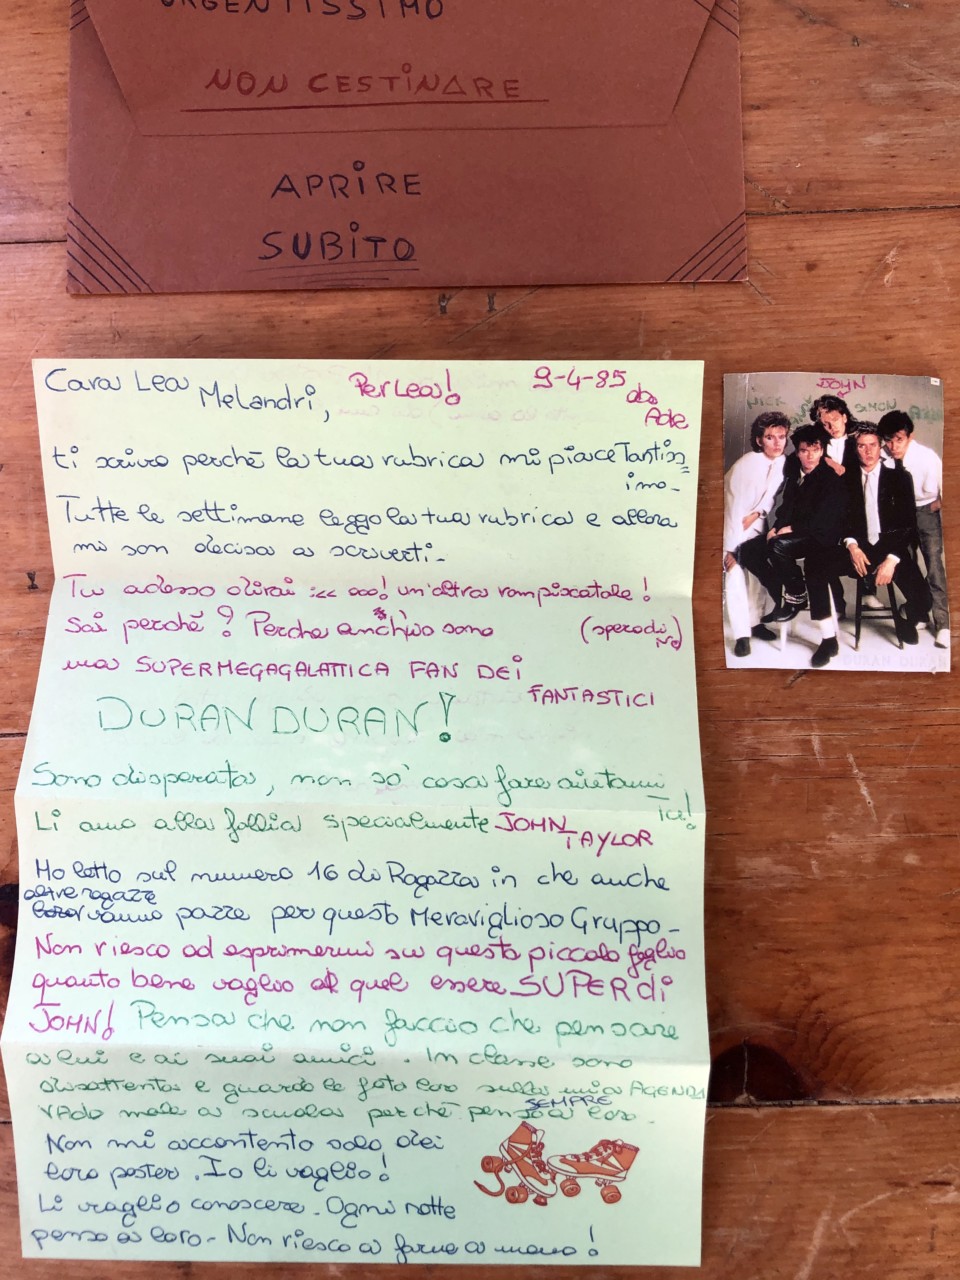 URGENTISSIMO
NON CESTINARE
APRIRE
SUBITO
Cara Lea
Melandri,
Per Lea!
9-4-85
da
Ade
ti scrivo perché la tua rubrica mi piace Tantiss=
imo-
Tutte le settimane leggo la tua rubrica e allora
mi son decisa a scriverti-
Tu adesso dirai :<< ooo! un'altra rompiscatole!
Sai perché? Perche anch'io sono (spero di
no)
una SUPERMEGAGALATTICA FAN DEI
FANTASTICI
DURAN DURAN!
Sono disperata, non so' cosa fare aiutami
TU!
Li amo alla follia specialmente JOHN
TAYLOR
Ho letto sul numero 16 di Ragazza in che anche
altre ragazze
vanno pazze per questo Meraviglioso Gruppo-
Non riesco ad esprimermi su questo piccolo foglio
quanto bene voglio a quel essere SUPER di
JOHN! Pensa che non faccio che pensare
a lui e ai suoi amici. In classe sono
disattenta e guardo le foto loro sulla mia AGENDA
SEMPRE
VAdo male a scuola perché penso a loro.
Non mi accontento solo dei
loro poster. Io li voglio!
Li voglio conoscere. Ogni notte
penso a loro- Non riesco a farne a meno!
JOHN
NICK
SIMON
DURAN DURAN